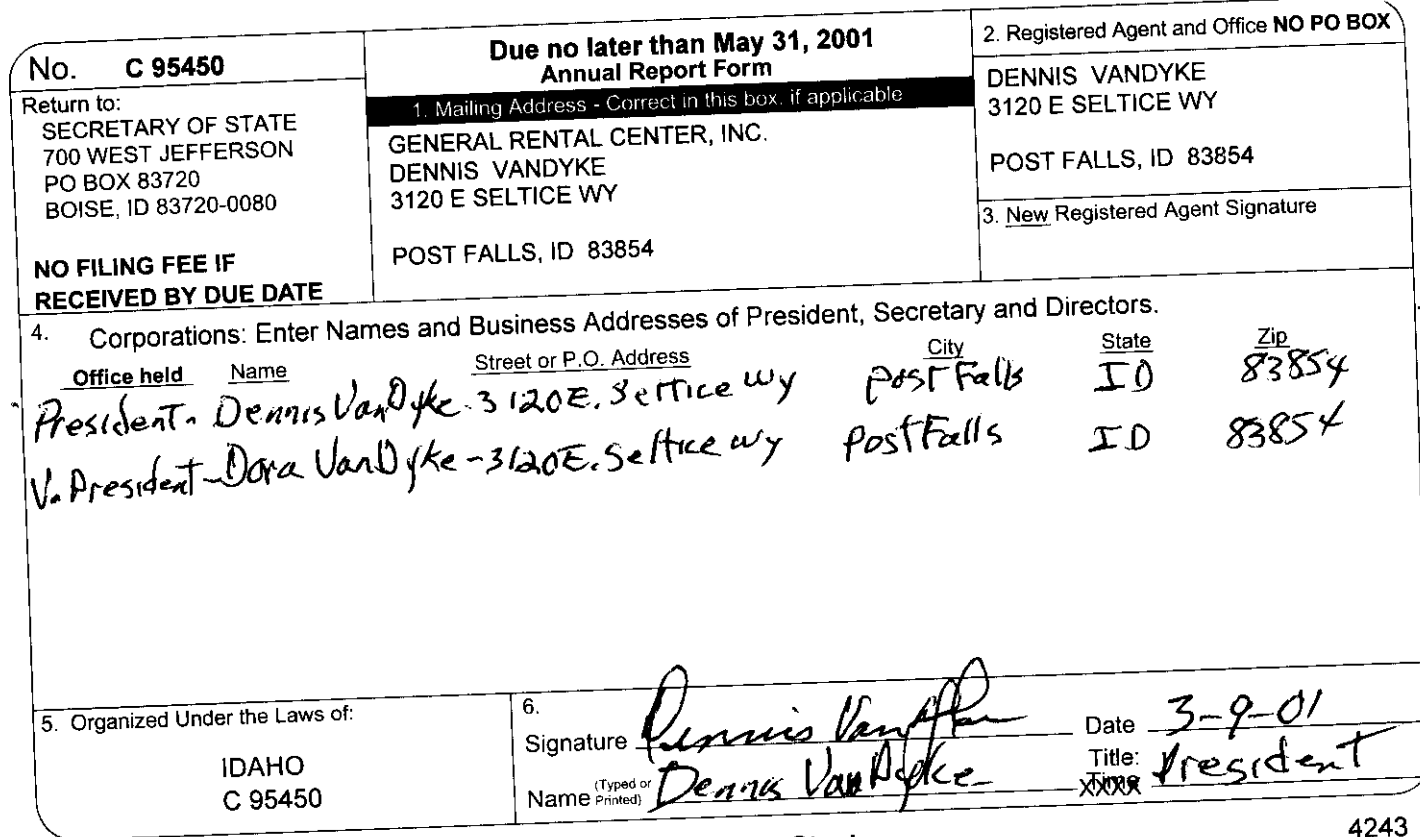 No. C 95450
Return to:
SECRETARY OF STATE
700 WEST JEFFERSON
PO BOX 83720
BOISE, ID 83720-0080
NO FILING FEE IF
RECEIVED BY DUE DATE
Due no later than May 31, 2001
Annual Report Form
1. Mailing Address - Correct in this box, if applicable
GENERAL RENTAL CENTER, INC.
DENNIS VANDYKE
3120 E SELTICE WY
POST FALLS, ID 83854
2. Registered Agent and Office NO PO BOX
DENNIS VANDYKE
3120 E SELTICE WY
POST FALLS, ID 83854
3. New Registered Agent Signature
4. Corporations: Enter Names and Business Addresses of President, Secretary and Directors.
Office held Name Street or P.O. Address City State Zip
President - Dennis VanDyke - 3120 E. Seltice Wy Post Falls ID 83854
V. President - Dora VanDyke - 3120 E. Seltice Wy Post Falls ID 83854
5. Organized Under the Laws of:
IDAHO
C 95450
6.
Signature Dennis VanDyke Date 3-9-01
Name (Typed or Printed) Dennis VanDyke Title: President
4243